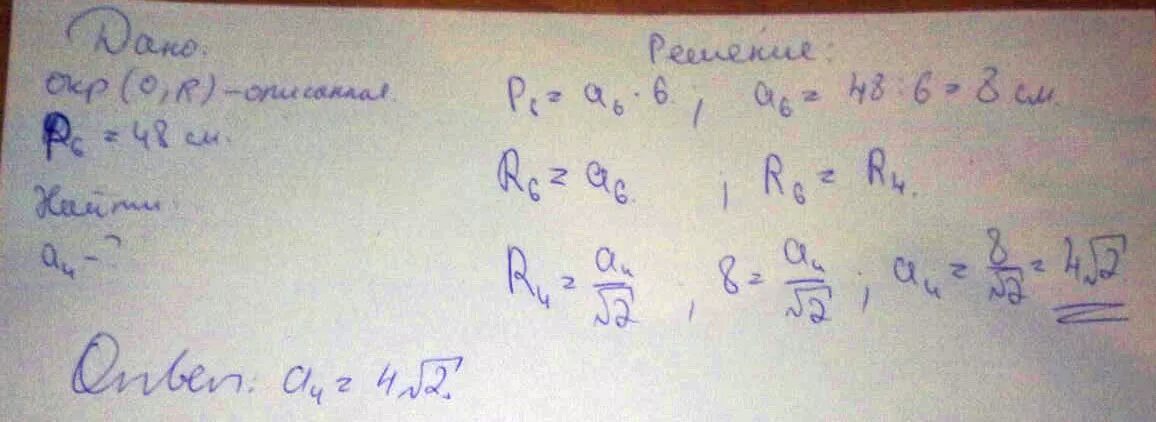 Дано:
окр (O, R) – описанная.
P₆ = 48 см.
Найти:
a₄ – ?
Решение:
P₆ = a₆ · 6 ; a₆ = 48 : 6 = 8 см.
R₆ = a₆ ; R₆ = R₄.
R₄ = a₄/√2 ; 8 = a₄/√2 ; a₄ = 8/√2 = 4√2
Ответ: a₄ = 4√2.